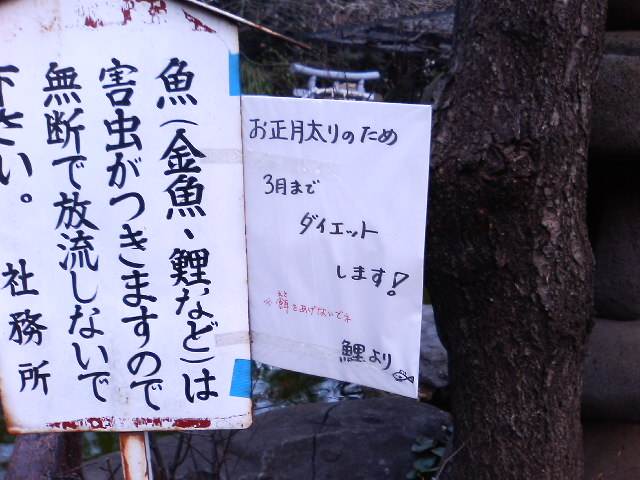 魚(金魚・鯉など)は
害虫がつきますので
無断で放流しないで
下さい。
社務所
お正月太りのため
3月まで
ダイエット
します!
※餌をあげないでネ
えさ
鯉より